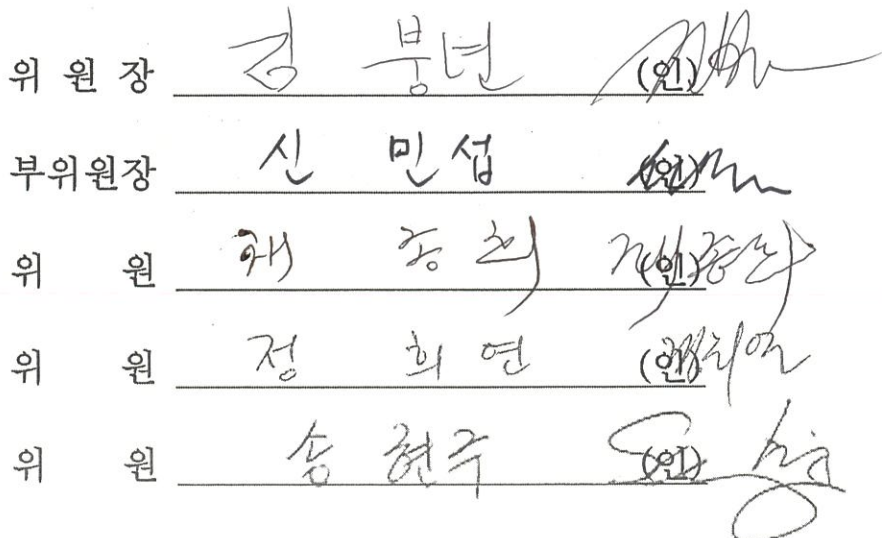 위 원 장 김 붕년 (인)
부위원장 신 민섭 (인)
위 원 (인)
위 원 정 희연 (인)
위 원 송 현주 (인)